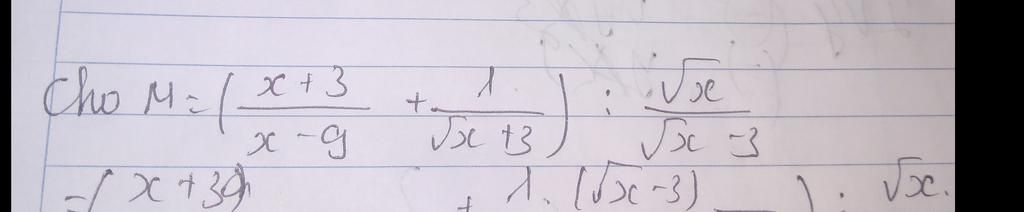 Cho M = ( \frac{x+3}{x-9} + \frac{1}{\sqrt{x}+3} ) : \frac{\sqrt{x}}{\sqrt{x}-3}
= ( x+3 + 1. (\sqrt{x}-3) ) : \sqrt{x}.